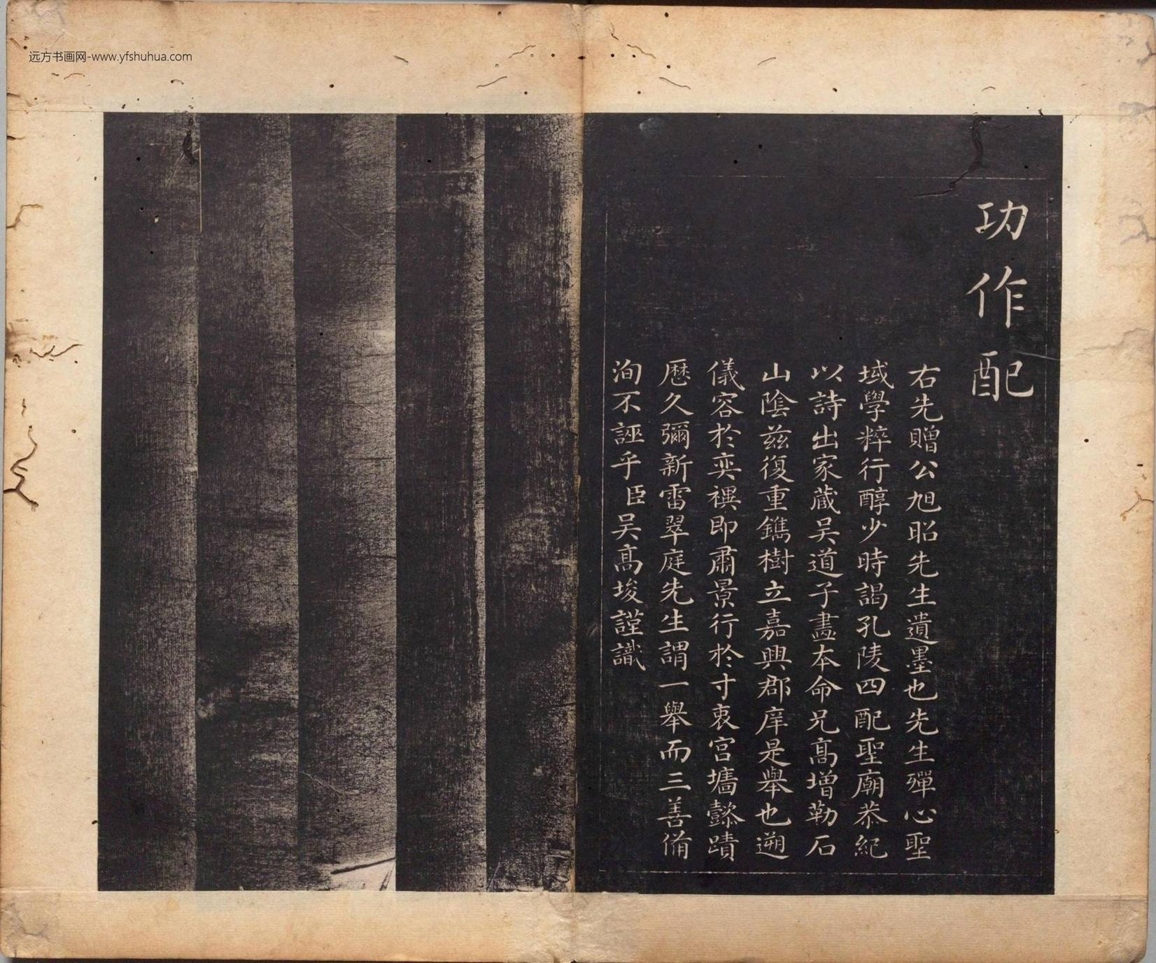 远方书画网-www.yfshuhua.com
功作配
右先贈公旭昭先生遺墨也先生殫心聖
域學粹行醇少時謁孔陵四配聖廟恭紀
以詩出家藏吴道子畫本命兄高增勒石
山陰兹復重鐫樹立嘉興郡庠是舉也遡
儀容於奕禩即肅景行於寸衷宫墻懿蹟
歷久彌新雷翠庭先生謂一舉而三善俻
洵不誣乎臣吴髙埈謹識